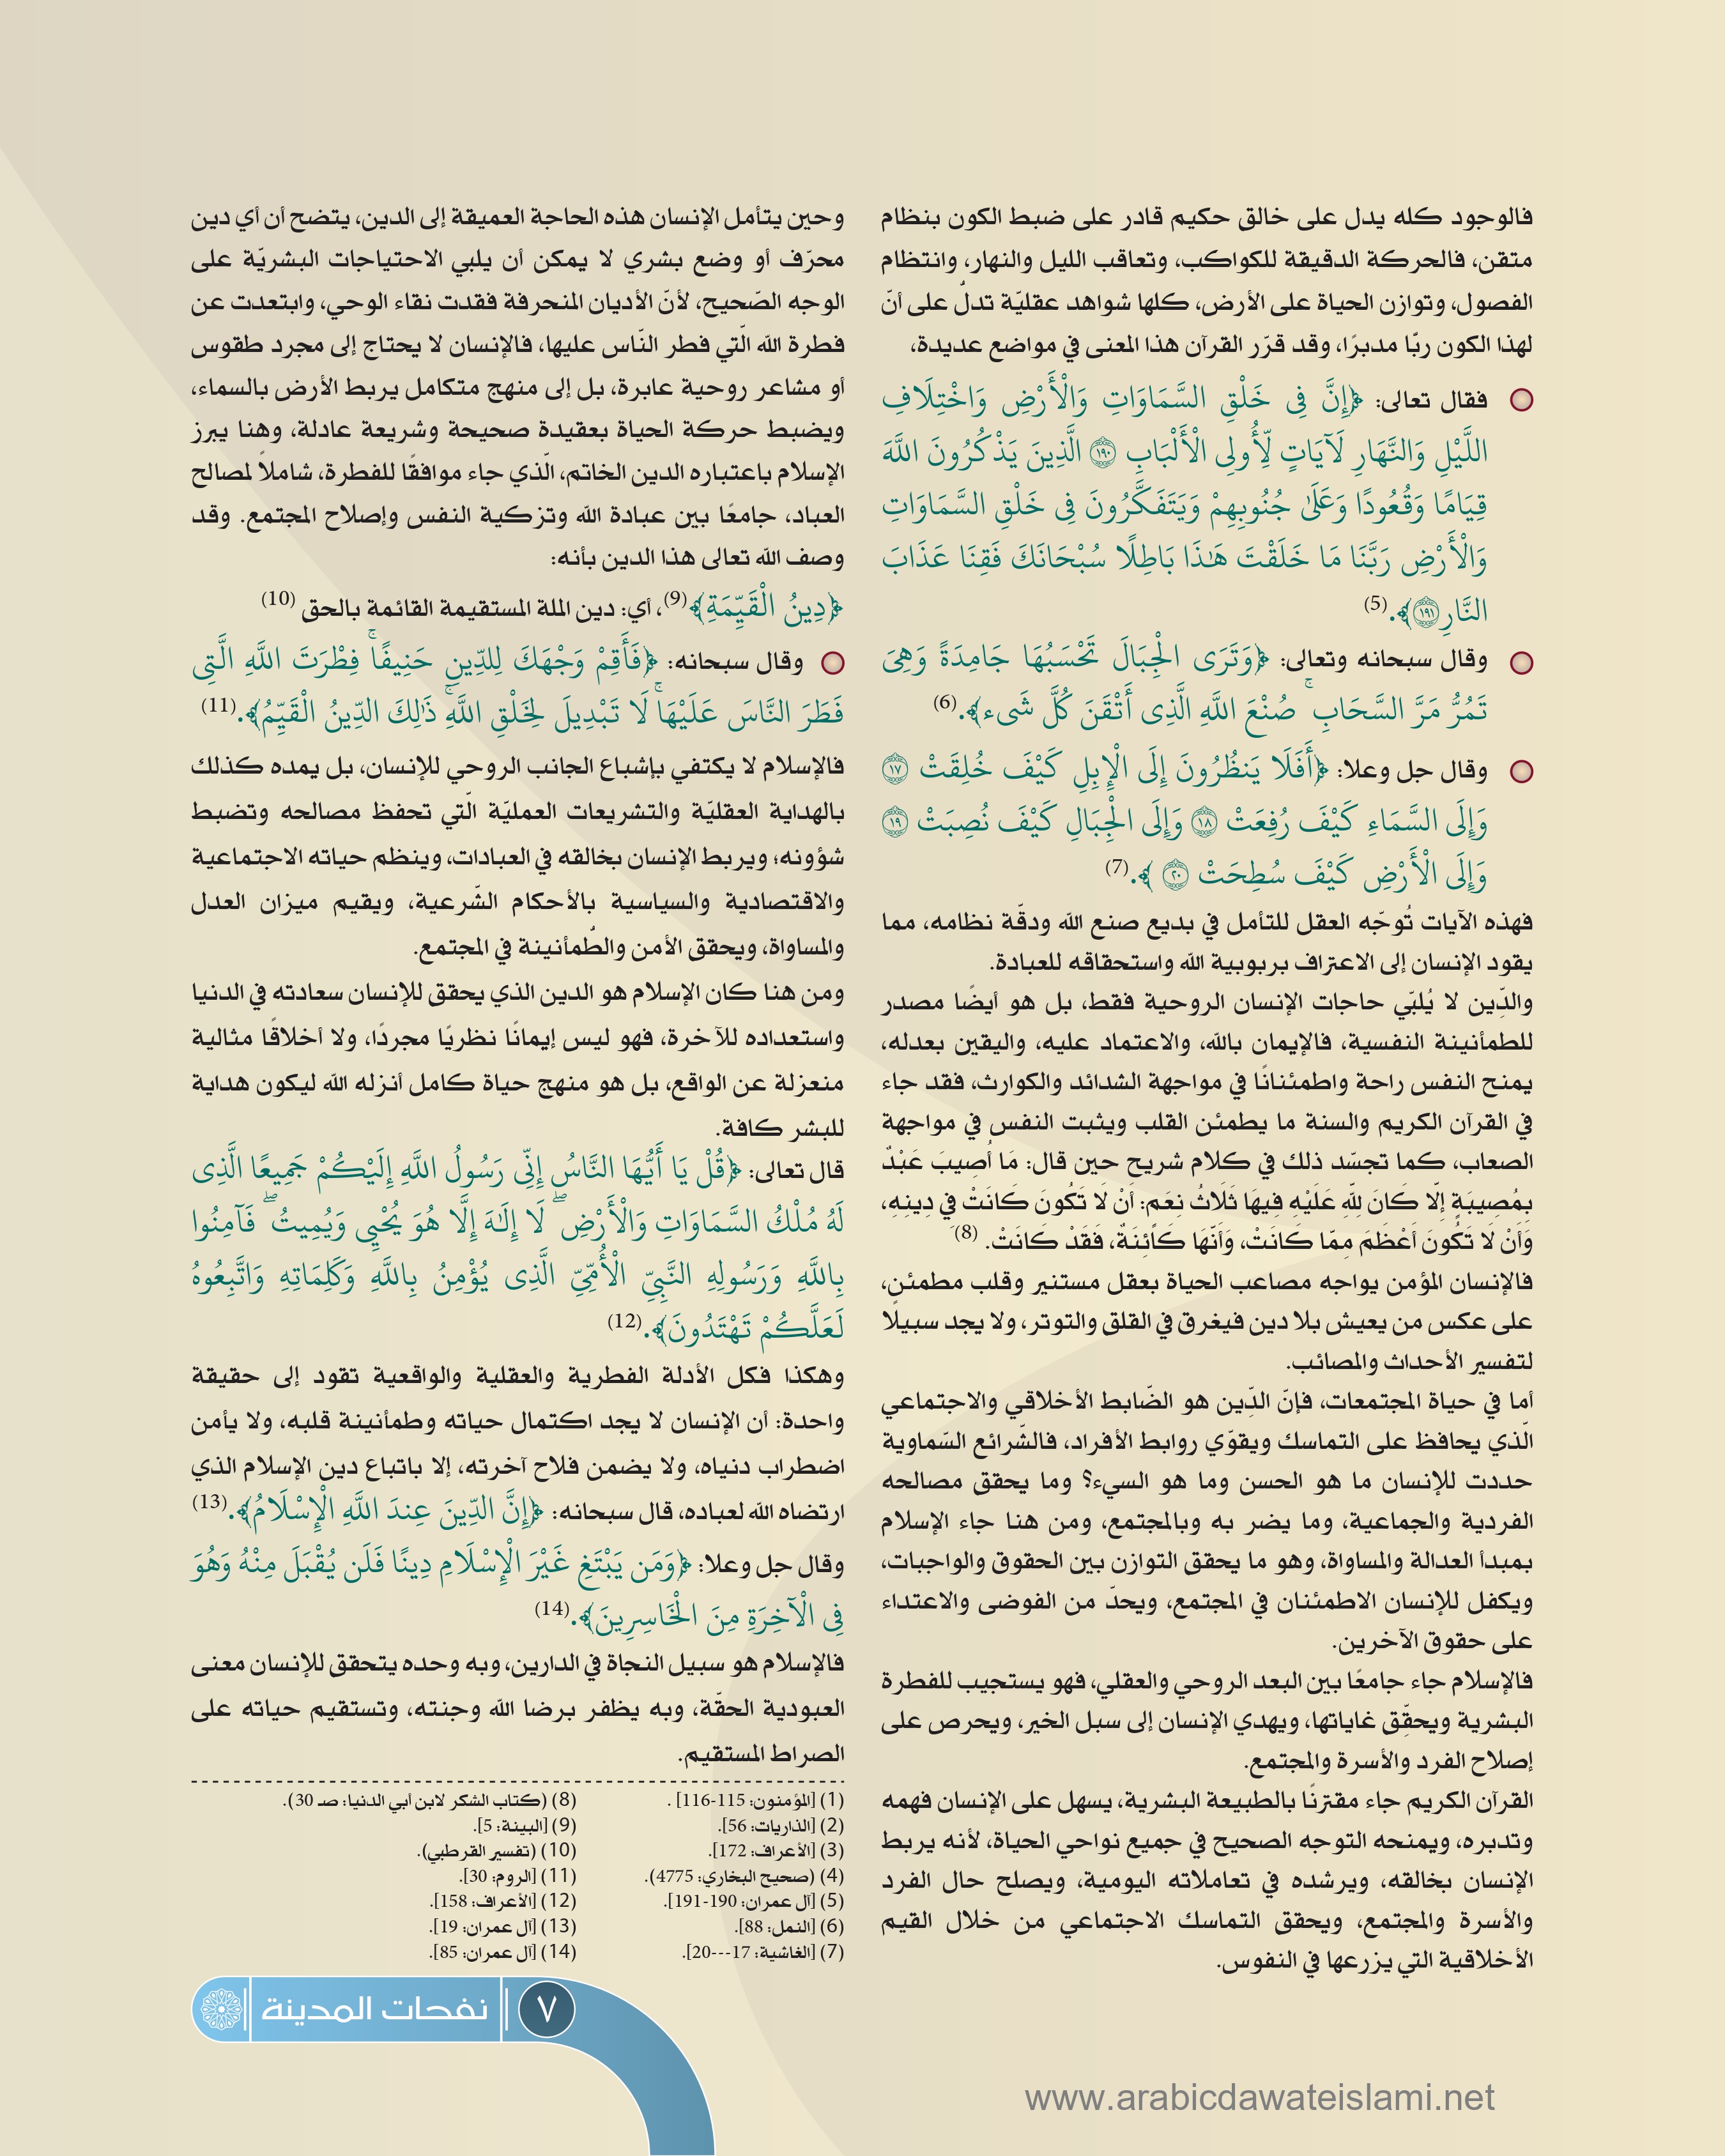 فالوجود كله يدل على خالق حكيم قادر على ضبط الكون بنظام
متقن، فالحركة الدقيقة للكواكب، وتعاقب الليل والنهار، وانتظام
الفصول، وتوازن الحياة على الأرض، كلها شواهد عقليّة تدلّ على أنّ
لهذا الكون ربًّا مدبرًا، وقد قرّر القرآن هذا المعنى في مواضع عديدة،
فقال تعالى: ﴿إِنَّ فِي خَلْقِ السَّمَاوَاتِ وَالْأَرْضِ وَاخْتِلَافِ
اللَّيْلِ وَالنَّهَارِ لَآيَاتٍ لِّأُولِي الْأَلْبَابِ ۝١٩٠ الَّذِينَ يَذْكُرُونَ اللَّهَ
قِيَامًا وَقُعُودًا وَعَلَىٰ جُنُوبِهِمْ وَيَتَفَكَّرُونَ فِي خَلْقِ السَّمَاوَاتِ
وَالْأَرْضِ رَبَّنَا مَا خَلَقْتَ هَٰذَا بَاطِلًا سُبْحَانَكَ فَقِنَا عَذَابَ
النَّارِ ۝١٩١﴾.(5)
وقال سبحانه وتعالى: ﴿وَتَرَى الْجِبَالَ تَحْسَبُهَا جَامِدَةً وَهِيَ
تَمُرُّ مَرَّ السَّحَابِ ۚ صُنْعَ اللَّهِ الَّذِي أَتْقَنَ كُلَّ شَيء﴾.(6)
وقال جل وعلا: ﴿أَفَلَا يَنظُرُونَ إِلَى الْإِبِلِ كَيْفَ خُلِقَتْ ۝١٧
وَإِلَى السَّمَاءِ كَيْفَ رُفِعَتْ ۝١٨ وَإِلَى الْجِبَالِ كَيْفَ نُصِبَتْ ۝١٩
وَإِلَى الْأَرْضِ كَيْفَ سُطِحَتْ ۝٢٠ ﴾.(7)
فهذه الآيات تُوجّه العقل للتأمل في بديع صنع الله ودقّة نظامه، مما
يقود الإنسان إلى الاعتراف بربوبية الله واستحقاقه للعبادة.
والدّين لا يُلبّي حاجات الإنسان الروحية فقط، بل هو أيضًا مصدر
للطمأنينة النفسية، فالإيمان بالله، والاعتماد عليه، واليقين بعدله،
يمنح النفس راحة واطمئنانًا في مواجهة الشدائد والكوارث، فقد جاء
في القرآن الكريم والسنة ما يطمئن القلب ويثبت النفس في مواجهة
الصعاب، كما تجسّد ذلك في كلام شريح حين قال: مَا أُصِيبَ عَبْدٌ
بِمُصِيبَةٍ إِلَّا كَانَ لِلّٰهِ عَلَيْهِ فِيهَا ثَلَاثُ نِعَمٍ: أَنْ لَا تَكُونَ كَانَتْ فِي دِينِهِ،
وَأَنْ لَا تَكُونَ أَعْظَمَ مِمَّا كَانَتْ، وَأَنَّهَا كَائِنَةٌ، فَقَدْ كَانَتْ. (8)
فالإنسان المؤمن يواجه مصاعب الحياة بعقل مستنير وقلب مطمئن،
على عكس من يعيش بلا دين فيغرق في القلق والتوتر، ولا يجد سبيلًا
لتفسير الأحداث والمصائب.
أما في حياة المجتمعات، فإنّ الدِّين هو الضّابط الأخلاقي والاجتماعي
الّذي يحافظ على التماسك ويقوّي روابط الأفراد، فالشّرائع السّماوية
حددت للإنسان ما هو الحسن وما هو السيء؟ وما يحقق مصالحه
الفردية والجماعية، وما يضر به وبالمجتمع، ومن هنا جاء الإسلام
بمبدأ العدالة والمساواة، وهو ما يحقق التوازن بين الحقوق والواجبات،
ويكفل للإنسان الاطمئنان في المجتمع، ويحدّ من الفوضى والاعتداء
على حقوق الآخرين.
فالإسلام جاء جامعًا بين البعد الروحي والعقلي، فهو يستجيب للفطرة
البشرية ويحقّق غاياتها، ويهدي الإنسان إلى سبل الخير، ويحرص على
إصلاح الفرد والأسرة والمجتمع.
القرآن الكريم جاء مقترنًا بالطبيعة البشرية، يسهل على الإنسان فهمه
وتدبره، ويمنحه التوجه الصحيح في جميع نواحي الحياة، لأنه يربط
الإنسان بخالقه، ويرشده في تعاملاته اليومية، ويصلح حال الفرد
والأسرة والمجتمع، ويحقق التماسك الاجتماعي من خلال القيم
الأخلاقية التي يزرعها في النفوس.
وحين يتأمل الإنسان هذه الحاجة العميقة إلى الدين، يتضح أن أي دين
محرّف أو وضع بشري لا يمكن أن يلبي الاحتياجات البشريّة على
الوجه الصّحيح، لأنّ الأديان المنحرفة فقدت نقاء الوحي، وابتعدت عن
فطرة الله الّتي فطر النّاس عليها، فالإنسان لا يحتاج إلى مجرد طقوس
أو مشاعر روحية عابرة، بل إلى منهج متكامل يربط الأرض بالسماء،
ويضبط حركة الحياة بعقيدة صحيحة وشريعة عادلة، وهنا يبرز
الإسلام باعتباره الدين الخاتم، الّذي جاء موافقًا للفطرة، شاملاً لمصالح
العباد، جامعًا بين عبادة الله وتزكية النفس وإصلاح المجتمع. وقد
وصف الله تعالى هذا الدين بأنه:
﴿دِينُ الْقَيِّمَةِ﴾(9)، أي: دين الملة المستقيمة القائمة بالحق (10)
وقال سبحانه: ﴿فَأَقِمْ وَجْهَكَ لِلدِّينِ حَنِيفًا ۚ فِطْرَتَ اللَّهِ الَّتِي
فَطَرَ النَّاسَ عَلَيْهَا ۚ لَا تَبْدِيلَ لِخَلْقِ اللَّهِ ۚ ذَٰلِكَ الدِّينُ الْقَيِّمُ﴾.(11)
فالإسلام لا يكتفي بإشباع الجانب الروحي للإنسان، بل يمده كذلك
بالهداية العقليّة والتشريعات العمليّة الّتي تحفظ مصالحه وتضبط
شؤونه؛ ويربط الإنسان بخالقه في العبادات، وينظم حياته الاجتماعية
والاقتصادية والسياسية بالأحكام الشّرعية، ويقيم ميزان العدل
والمساواة، ويحقق الأمن والطُمأنينة في المجتمع.
ومن هنا كان الإسلام هو الدين الذي يحقق للإنسان سعادته في الدنيا
واستعداده للآخرة، فهو ليس إيمانًا نظريًا مجردًا، ولا أخلاقًا مثالية
منعزلة عن الواقع، بل هو منهج حياة كامل أنزله الله ليكون هداية
للبشر كافة.
قال تعالى: ﴿قُلْ يَا أَيُّهَا النَّاسُ إِنِّي رَسُولُ اللَّهِ إِلَيْكُمْ جَمِيعًا الَّذِي
لَهُ مُلْكُ السَّمَاوَاتِ وَالْأَرْضِ ۖ لَا إِلَٰهَ إِلَّا هُوَ يُحْيِي وَيُمِيتُ ۖ فَآمِنُوا
بِاللَّهِ وَرَسُولِهِ النَّبِيِّ الْأُمِّيِّ الَّذِي يُؤْمِنُ بِاللَّهِ وَكَلِمَاتِهِ وَاتَّبِعُوهُ
لَعَلَّكُمْ تَهْتَدُونَ﴾.(12)
وهكذا فكل الأدلة الفطرية والعقلية والواقعية تقود إلى حقيقة
واحدة: أن الإنسان لا يجد اكتمال حياته وطمأنينة قلبه، ولا يأمن
اضطراب دنياه، ولا يضمن فلاح آخرته، إلا باتباع دين الإسلام الذي
ارتضاه الله لعباده، قال سبحانه: ﴿إِنَّ الدِّينَ عِندَ اللَّهِ الْإِسْلَامُ﴾.(13)
وقال جل وعلا: ﴿وَمَن يَبْتَغِ غَيْرَ الْإِسْلَامِ دِينًا فَلَن يُقْبَلَ مِنْهُ وَهُوَ
فِي الْآخِرَةِ مِنَ الْخَاسِرِينَ﴾.(14)
فالإسلام هو سبيل النجاة في الدارين، وبه وحده يتحقق للإنسان معنى
العبودية الحقّة، وبه يظفر برضا الله وجنته، وتستقيم حياته على
الصراط المستقيم.
(1) [المؤمنون: 115-116] .
(2) [الذاريات: 56].
(3) [الأعراف: 172].
(4) (صحيح البخاري: 4775).
(5) [آل عمران: 190-191].
(6) [النمل: 88].
(7) [الغاشية: 17---20].
(8) (كتاب الشكر لابن أبي الدنيا: صـ 30).
(9) [البينة: 5].
(10) (تفسير القرطبي).
(11) [الروم: 30].
(12) [الأعراف: 158].
(13) [آل عمران: 19].
(14) [آل عمران: 85].
٧ نفحات المدينة
www.arabicdawateislami.net